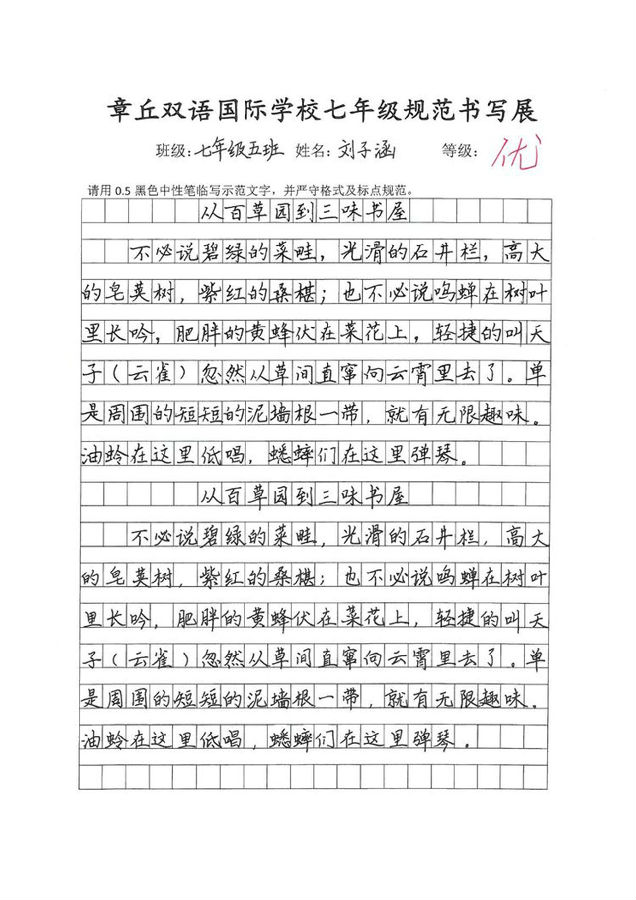 章丘双语国际学校七年级规范书写展
班级：七年级五班 姓名：刘子涵 等级：优
请用 0.5 黑色中性笔临写示范文字，并严守格式及标点规范。
从百草园到三味书屋
不必说碧绿的菜畦，光滑的石井栏，高大
的皂荚树，紫红的桑椹；也不必说鸣蝉在树叶
里长吟，肥胖的黄蜂伏在菜花上，轻捷的叫天
子（云雀）忽然从草间直窜向云霄里去了。单
是周围的短短的泥墙根一带，就有无限趣味。
油蛉在这里低唱，蟋蟀们在这里弹琴。
从百草园到三味书屋
不必说碧绿的菜畦，光滑的石井栏，高大
的皂荚树，紫红的桑椹；也不必说鸣蝉在树叶
里长吟，肥胖的黄蜂伏在菜花上，轻捷的叫天
子（云雀）忽然从草间直窜向云霄里去了。单
是周围的短短的泥墙根一带，就有无限趣味。
油蛉在这里低唱，蟋蟀们在这里弹琴。